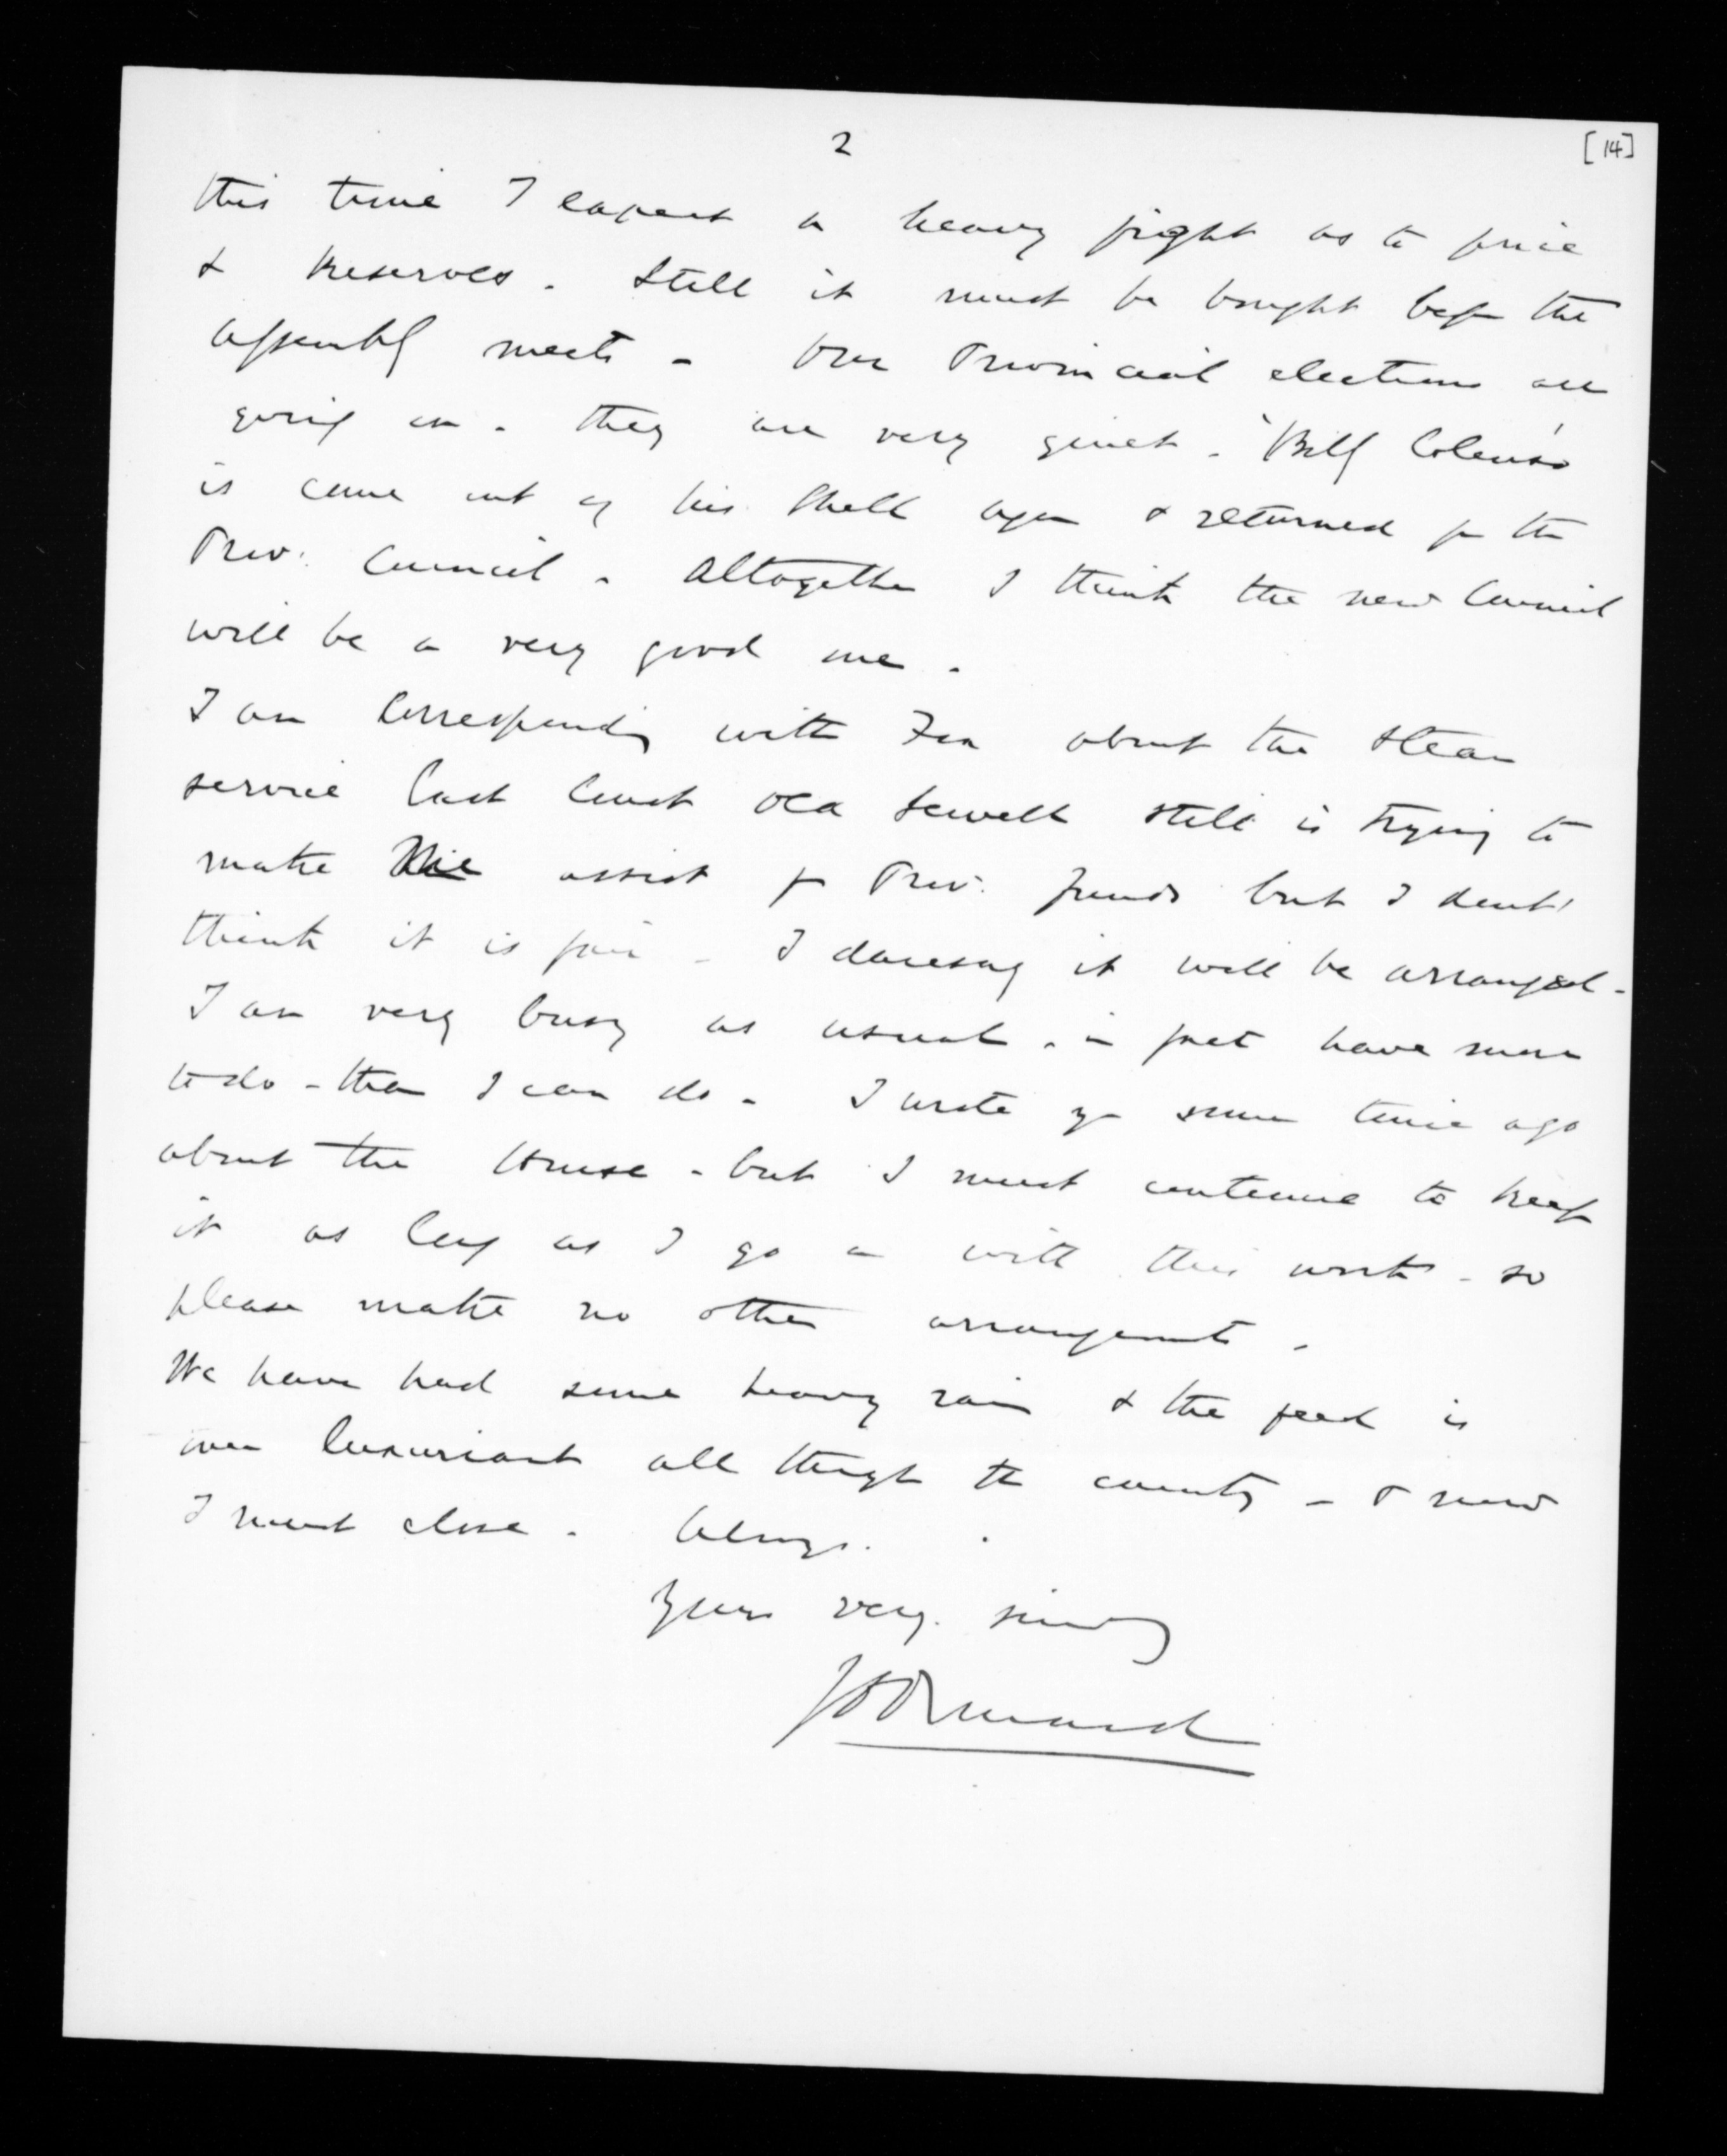 2
[14]
this time I expect a heavy fight as to price
& Reserves. Still it must be bought before the
Assembly meets - Our Provincial elections are
going on. they are very quiet. 'Billy Colenso'
is come out of his Shell again & returned for the
Prov: Council. Altogether I think the new Council
will be a very good one.
I am Corresponding with Fox about the Steam
service East Coast Old Sewell still is trying to
make assist for Prov: funds but I dont
think it is fair - I daresay it will be arranged -
I am very busy as usual. in fact have more
to do - than I can do - I wrote you some time ago
about the House - but I must continue to keep
it as long as I go on with this work - so
please make no other arrangements.
We have had some heavy rain & the feed is
over luxuriant all through the country - & now
I must close - Always.
Yours very sincerely
JD Ormond